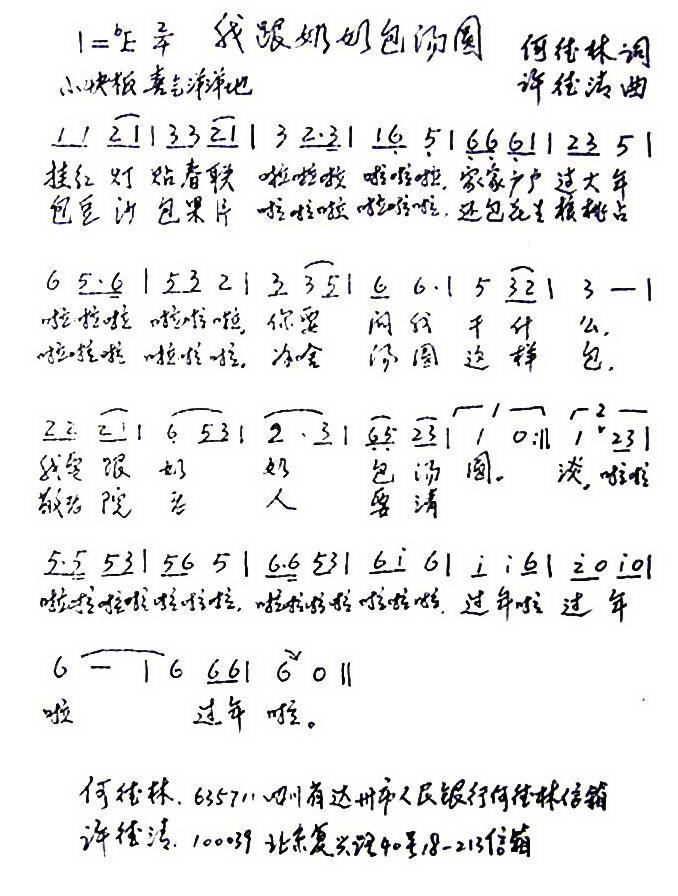 1=♭E 2/4 我跟奶奶包汤圆 何德林词
小快板 喜气洋洋地 许德清曲
1 1 2 1 | 3 3 2 1 | 3 2·3 | 1 6 5 | 6 6 6 1 | 2 3 5 |
挂红灯 贴春联 啦啦啦 啦啦啦, 家家户户 过大年
包豆沙 包果片 啦啦啦 啦啦啦, 还包花生核桃占
6 5·6 | 5 3 2 | 3 3 5 | 6 6· | 5 3 2 | 3 — |
啦啦啦 啦啦啦, 你要 问我 干什么,
啦啦啦 啦啦啦, 为啥 汤圆 这样包,
2 2 2 1 | 6 5 3 | 2 · 3 | 6 5 2 3 | 1 0 :|| 1 2 3 |
我要跟奶奶 包汤圆。 淡, 啦啦
敬老院老人要清
5·5 5 3 | 5 6 5 | 6·6 5 3 | 6 i 6 | i i 6 | i 0 i 0 |
啦啦啦啦 啦啦啦, 啦啦啦啦 啦啦啦, 过年啦 过年
6 — | 6 6 6 | 6 0 ||
啦 过年啦。
何德林. 635711 四川省达州市人民银行何德林信箱
许德清. 100039 北京复兴路40号18-213信箱